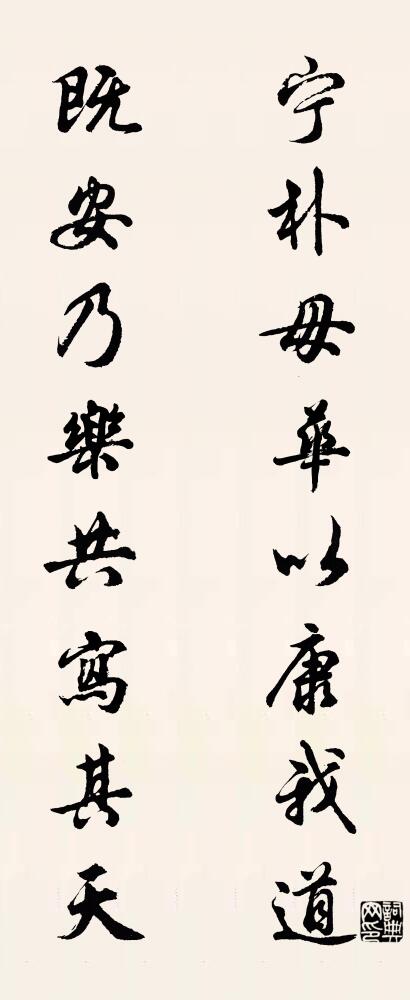 宁朴毋华以康我道
既安乃樂共寫其天
詞典网印